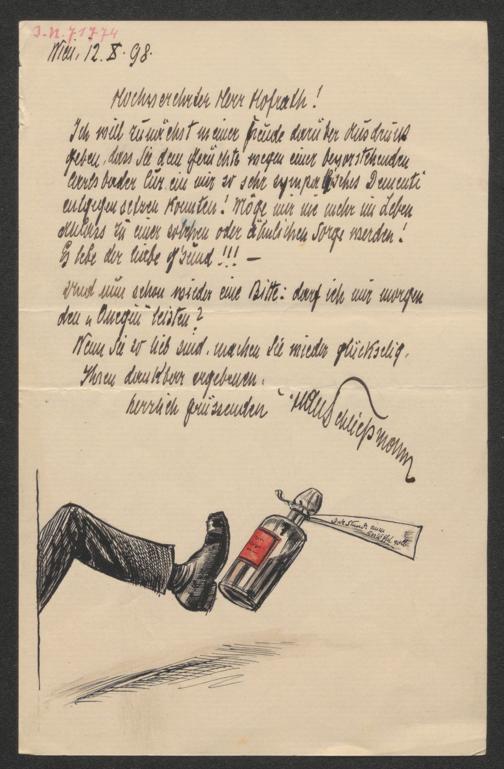 J.N. 71774
Wien, 12. X. 98.
Hochverehrter Herr Hofrath!
Ich will zunächst meiner Freude darüber Ausdruck
geben, dass Sie dem Gerüchte wegen einer bevorstehenden
Carlsbader Cur ein mir so sehr sympathisches Dementi
entgegensetzen konnten! Möge mir nie mehr im Leben
Anlass zu einer solchen oder ähnlichen Sorge werden!
Es lebe der liebe G'sund!!! —
Und nun schon wieder eine Bitte: darf ich mir morgen
den „Onegin leisten?
Wenn Sie so lieb sind, machen Sie wieder glückselig,
Ihren dankbar ergebenen,
herzlich grüssenden Hans Schließmann